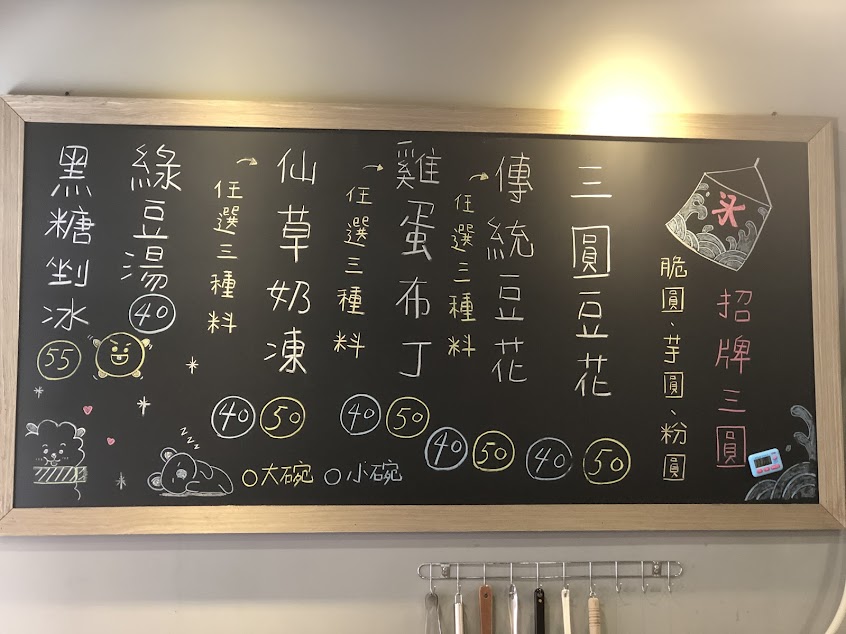 头
招牌三圓
脆圓、芋圓、粉圓
三圓豆花
40 50
傳統豆花
任選三種料
40 50
雞蛋布丁
任選三種料
40 50
仙草奶凍
任選三種料
40 50
綠豆湯
40
黑糖剉冰
55
zzz
○大碗 ○小碗